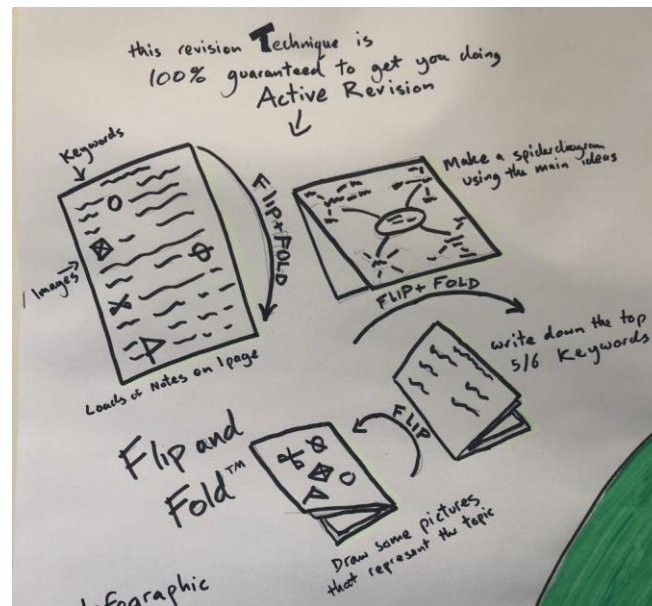 this revision Technique is
100% guaranteed to get you doing
Active Revision
Keywords
Images
FLIP+FOLD
Loads of Notes on 1 page
Make a spiderdiagram
using the main ideas
FLIP+ FOLD
write down the top
5/6 Keywords
FLIP
Flip and
Fold™
Draw some pictures
that represent the topic